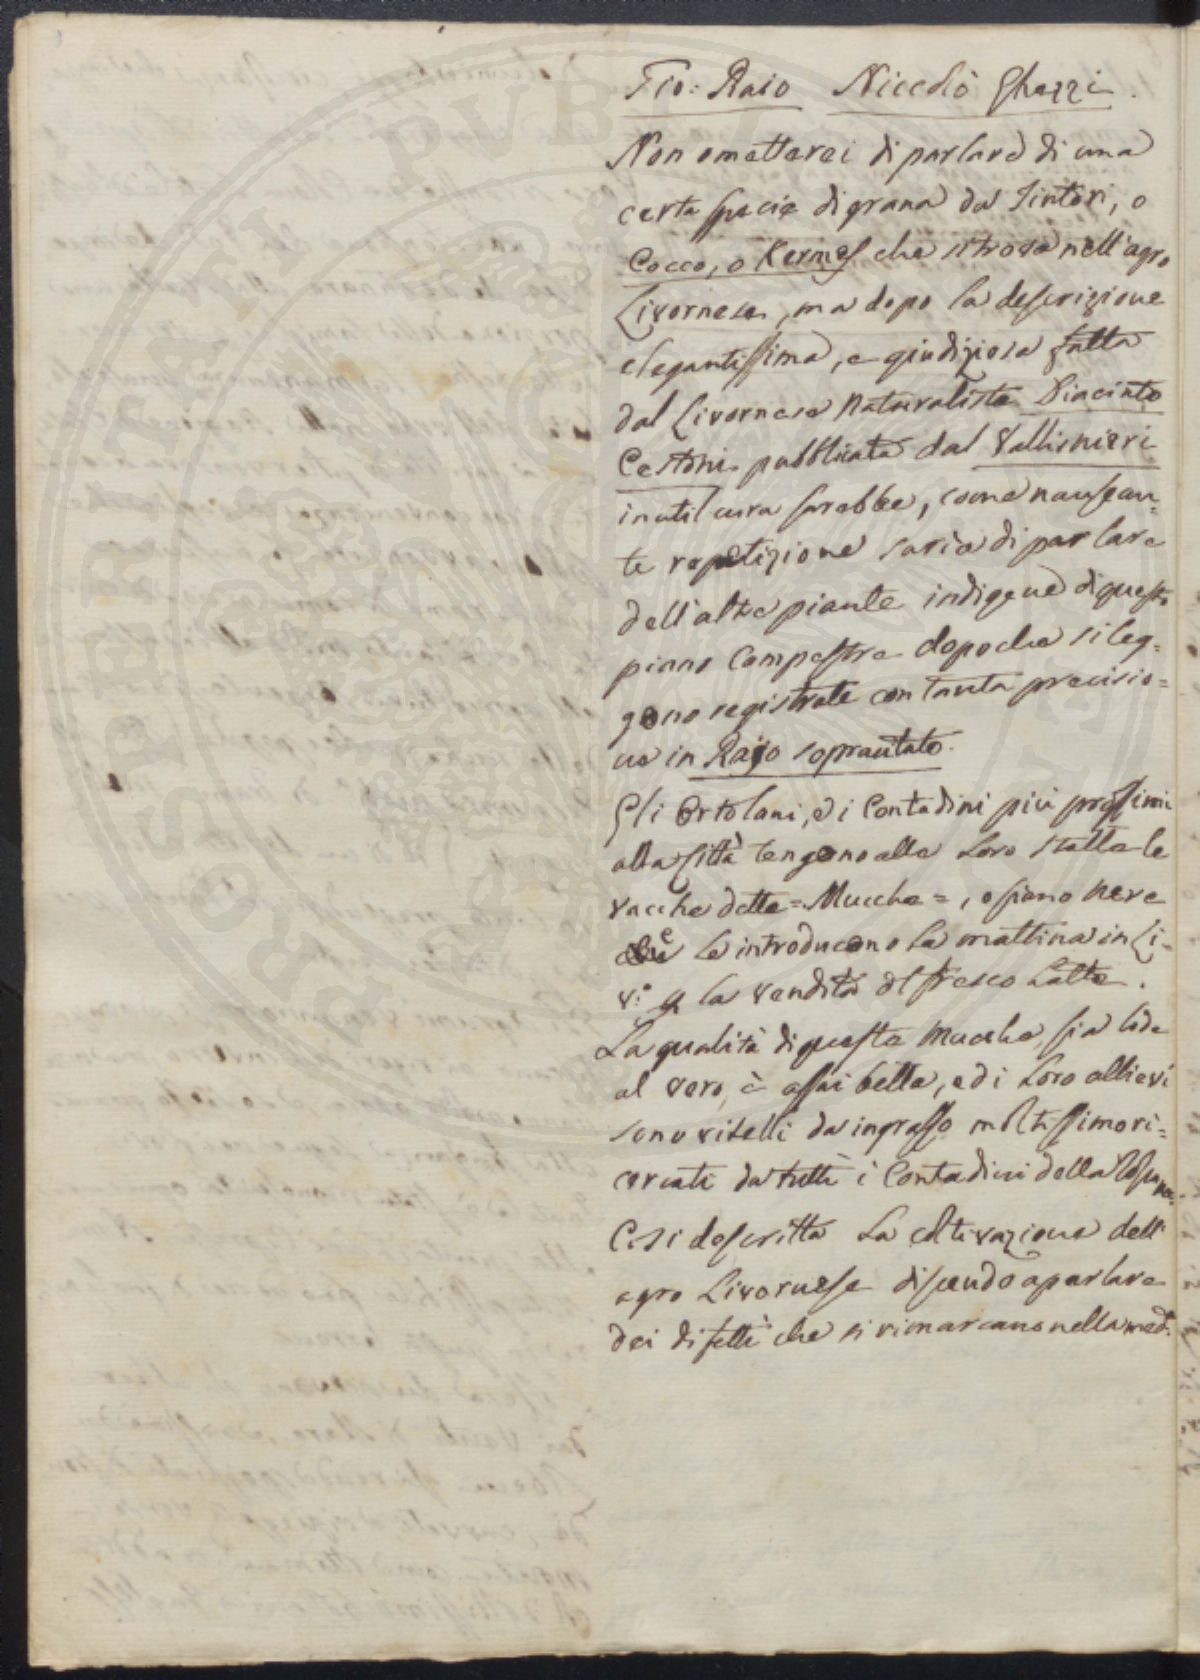 Gio: Raio Niccolò Ghezzi.
Non ometterei di parlare di una
certa specie di grana da Tintori, o
Cocco, o Kermes che si trova nell'agro
Livornese, ma dopo la descrizione
elegantissima, e giudiziosa fatta
dal Livornese Naturalista Diacinto
Cestoni pubblicata dal Vallisnieri
inutil cura sarebbe, come nausean=
te repetizione saria di parlare
dell'altre piante indigene di questo
piano Campestre dopoche si leg=
gono registrate con tanta precisio=
ne in Raijo sopracitato.
Gli Ortolani, e i Contadini più prossimi
alla Città tengono alle Loro stalle le
vacche dette = Mucche =, o siano nere
che le introducono la mattina in Li=
v.º p. la vendita del fresco Latte.
La qualità di queste Mucche, sia lode
al vero, è assai bella, ed i Loro allievi
sono vitelli da ingrasso moltissimo ri=
cercati da tutti i Contadini della Toscana.
Così descritta La coltivazione dell'
agro Livornese discendo a parlare
dei difetti che si rimarcano nella med.